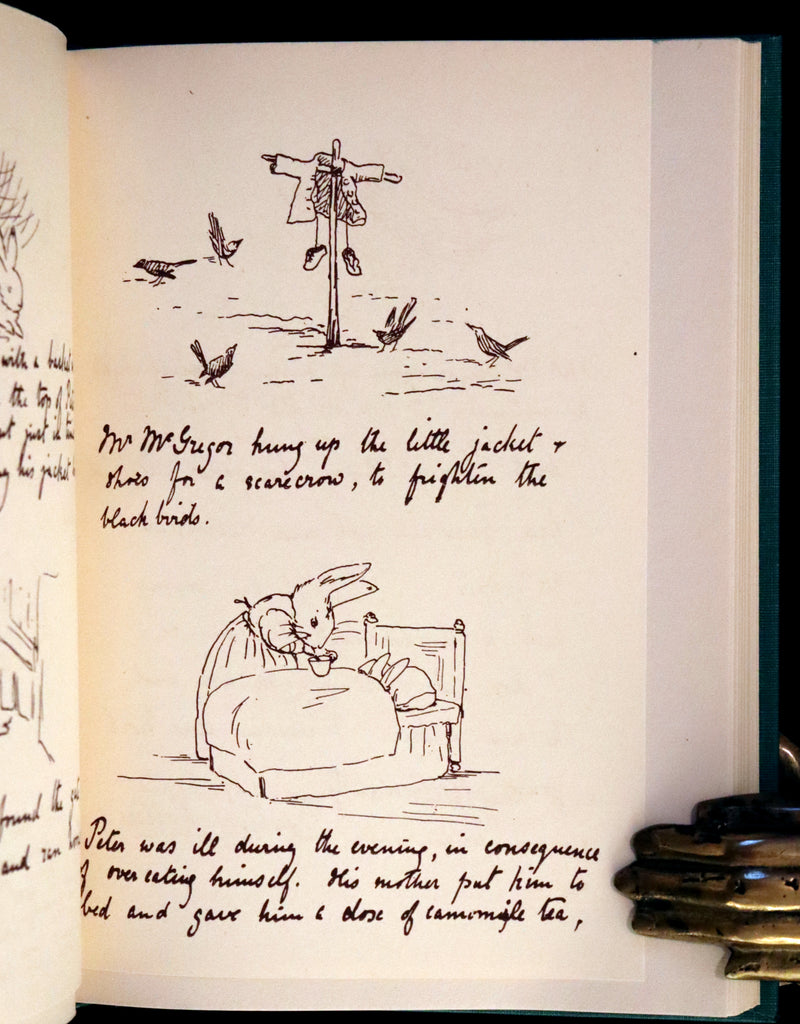 with a basket
the top of
just in
his jacket
Mr McGregor hung up the little jacket &
shoes for a scarecrow, to frighten the
black birds.
found the
and ran
Peter was ill during the evening, in consequence
of over eating himself. His mother put him to
bed and gave him a dose of camomile tea,